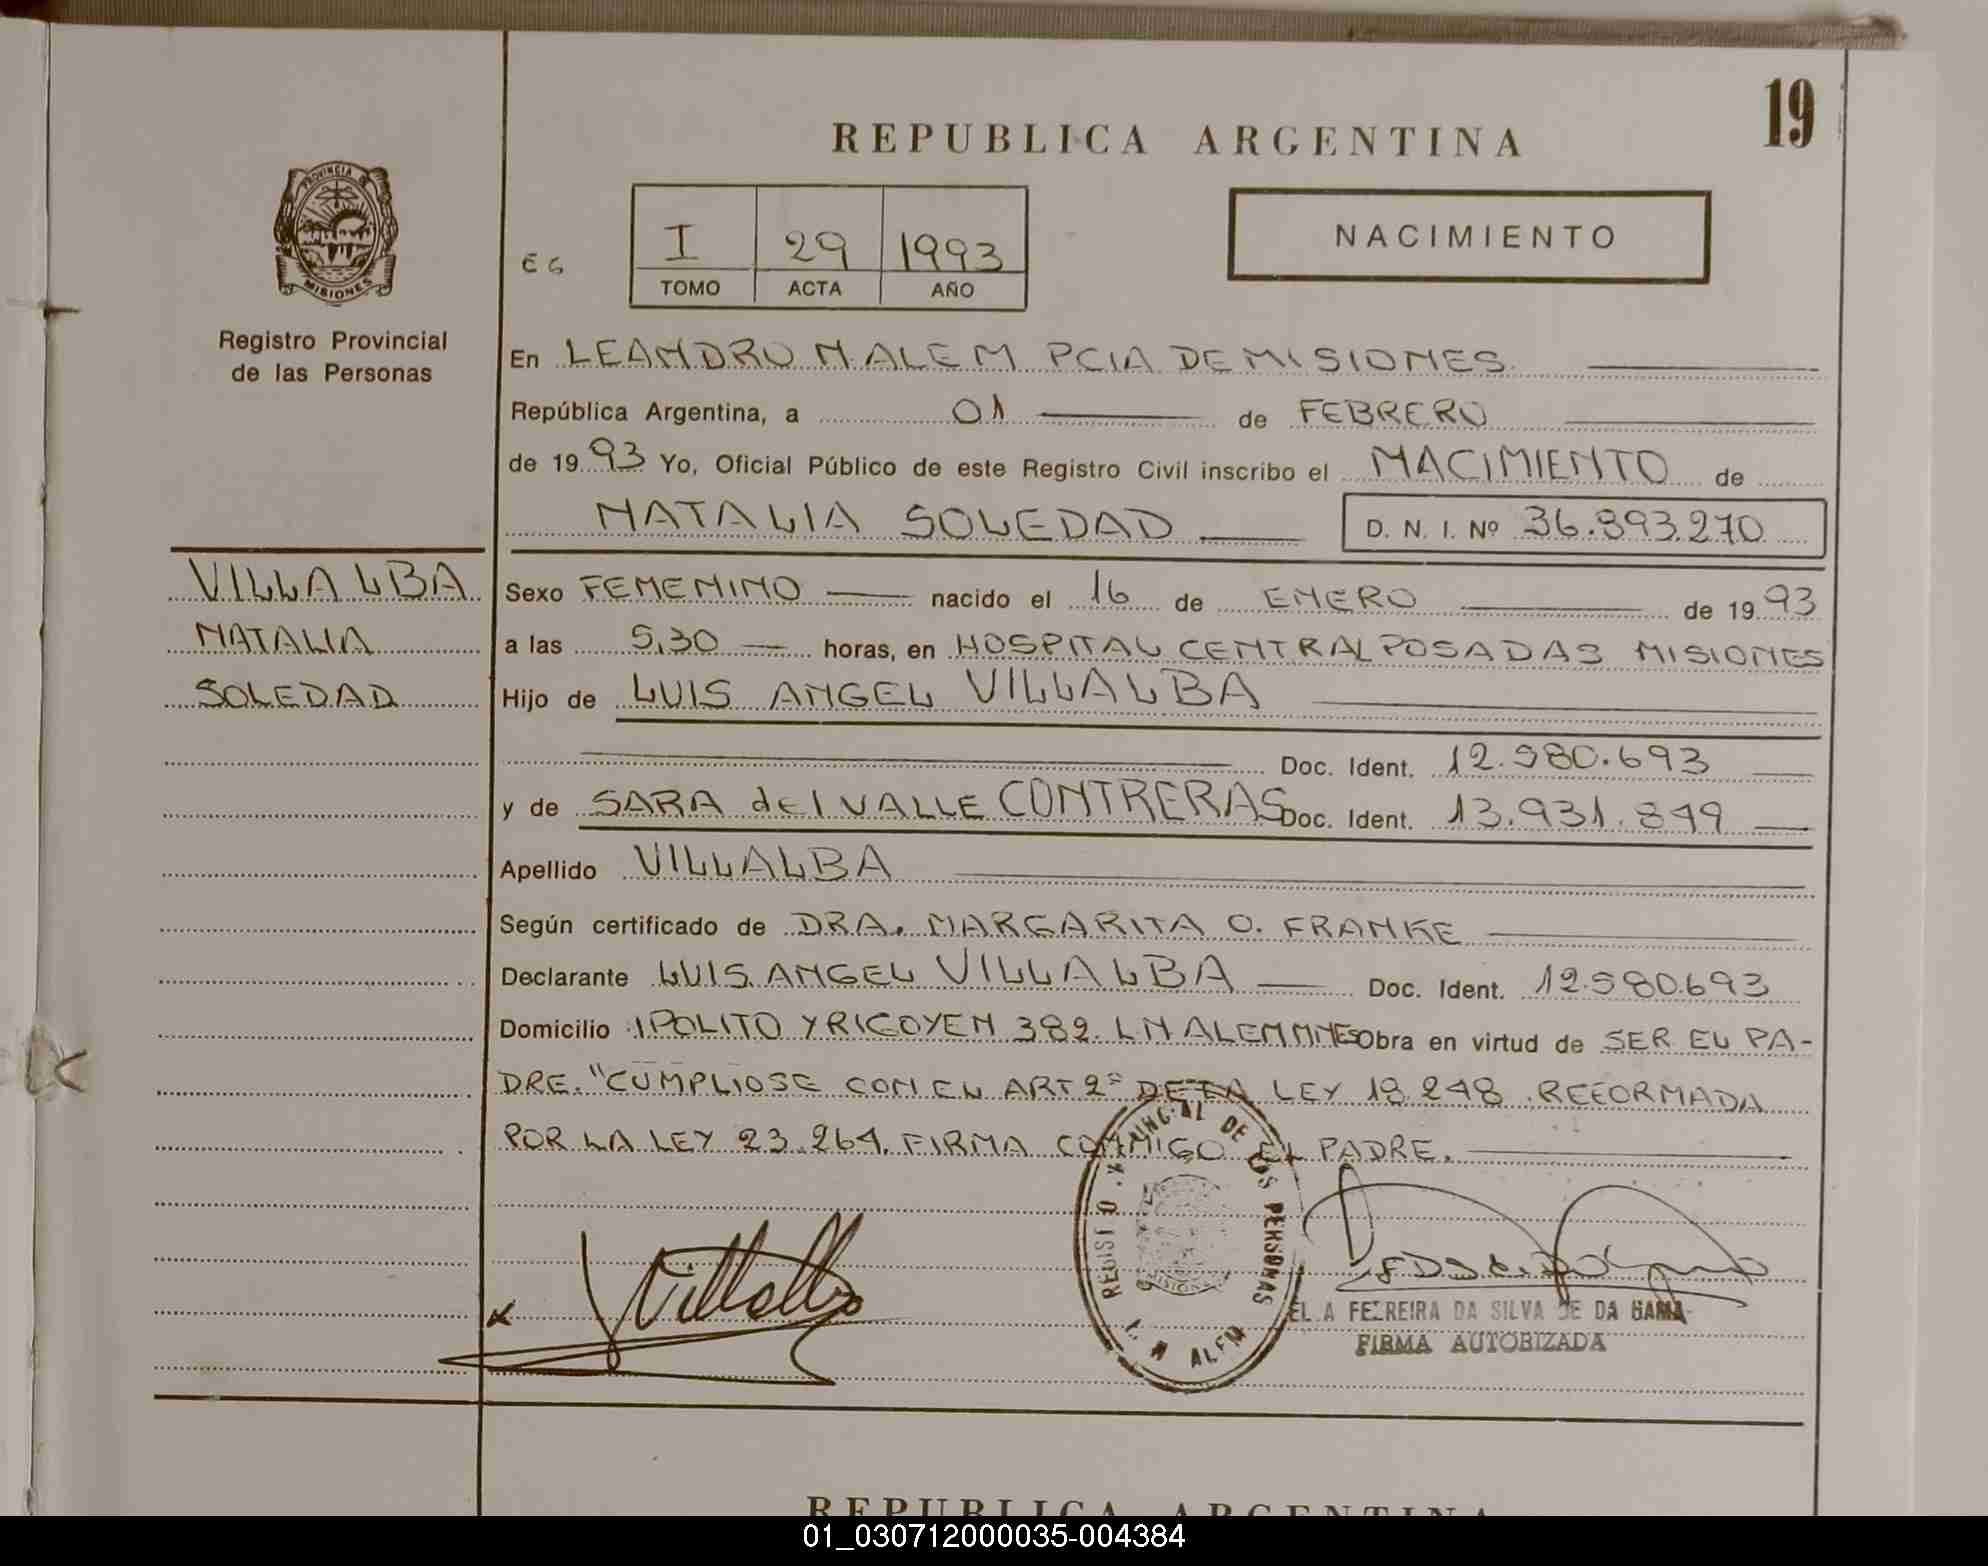 19
REPUBLICA ARGENTINA
PROVINCIA DE
MISIONES
Registro Provincial
de las Personas
E6
I 29 1993
TOMO ACTA AÑO
NACIMIENTO
En LEANDRO N. ALEM PCIA DE MISIONES
República Argentina, a 01 de FEBRERO
de 1993 Yo, Oficial Público de este Registro Civil inscribo el NACIMIENTO de
NATALIA SOLEDAD D. N. I. Nº 36.393.270
VILLALBA
NATALIA
SOLEDAD
Sexo FEMENINO nacido el 16 de ENERO de 1993
a las 5,30 horas, en HOSPITAL CENTRAL POSADAS MISIONES
Hijo de LUIS ANGEL VILLALBA
Doc. Ident. 12.980.693
y de SARA del VALLE CONTRERAS Doc. Ident. 13.931.849
Apellido VILLALBA
Según certificado de DRA. MARGARITA O. FRANKE
Declarante LUIS ANGEL VILLALBA Doc. Ident. 12.980.693
Domicilio IPOLITO YRIGOYEN 382. L N ALEM MNES Obra en virtud de SER EL PA-
DRE. "CUMPLIOSE CON EL ART 2º DE LA LEY 18.248 REFORMADA
POR LA LEY 23.264. FIRMA CONMIGO EL PADRE.
REGISTRO PROVINCIAL DE LAS PERSONAS
MISIONES
L. N ALEM
Villalba
FERREIRA DA SILVA DE DA GAMA
FIRMA AUTORIZADA
REPUBLICA ARGENTINA
01_030712000035-004384